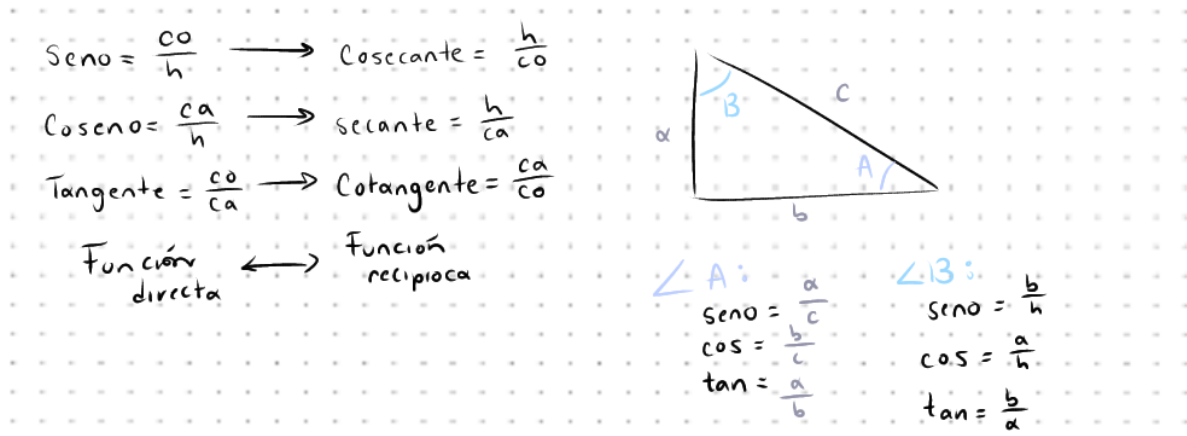 Seno = co/h → Cosecante = h/co
Coseno = ca/h → secante = h/ca
Tangente = co/ca → Cotangente = ca/co
Función directa ↔ Función recipioca
a
B
c
A
b
∠A:
seno = a/c
cos = b/c
tan = a/b
∠B:
seno = b/h
cos = a/h
tan = b/a